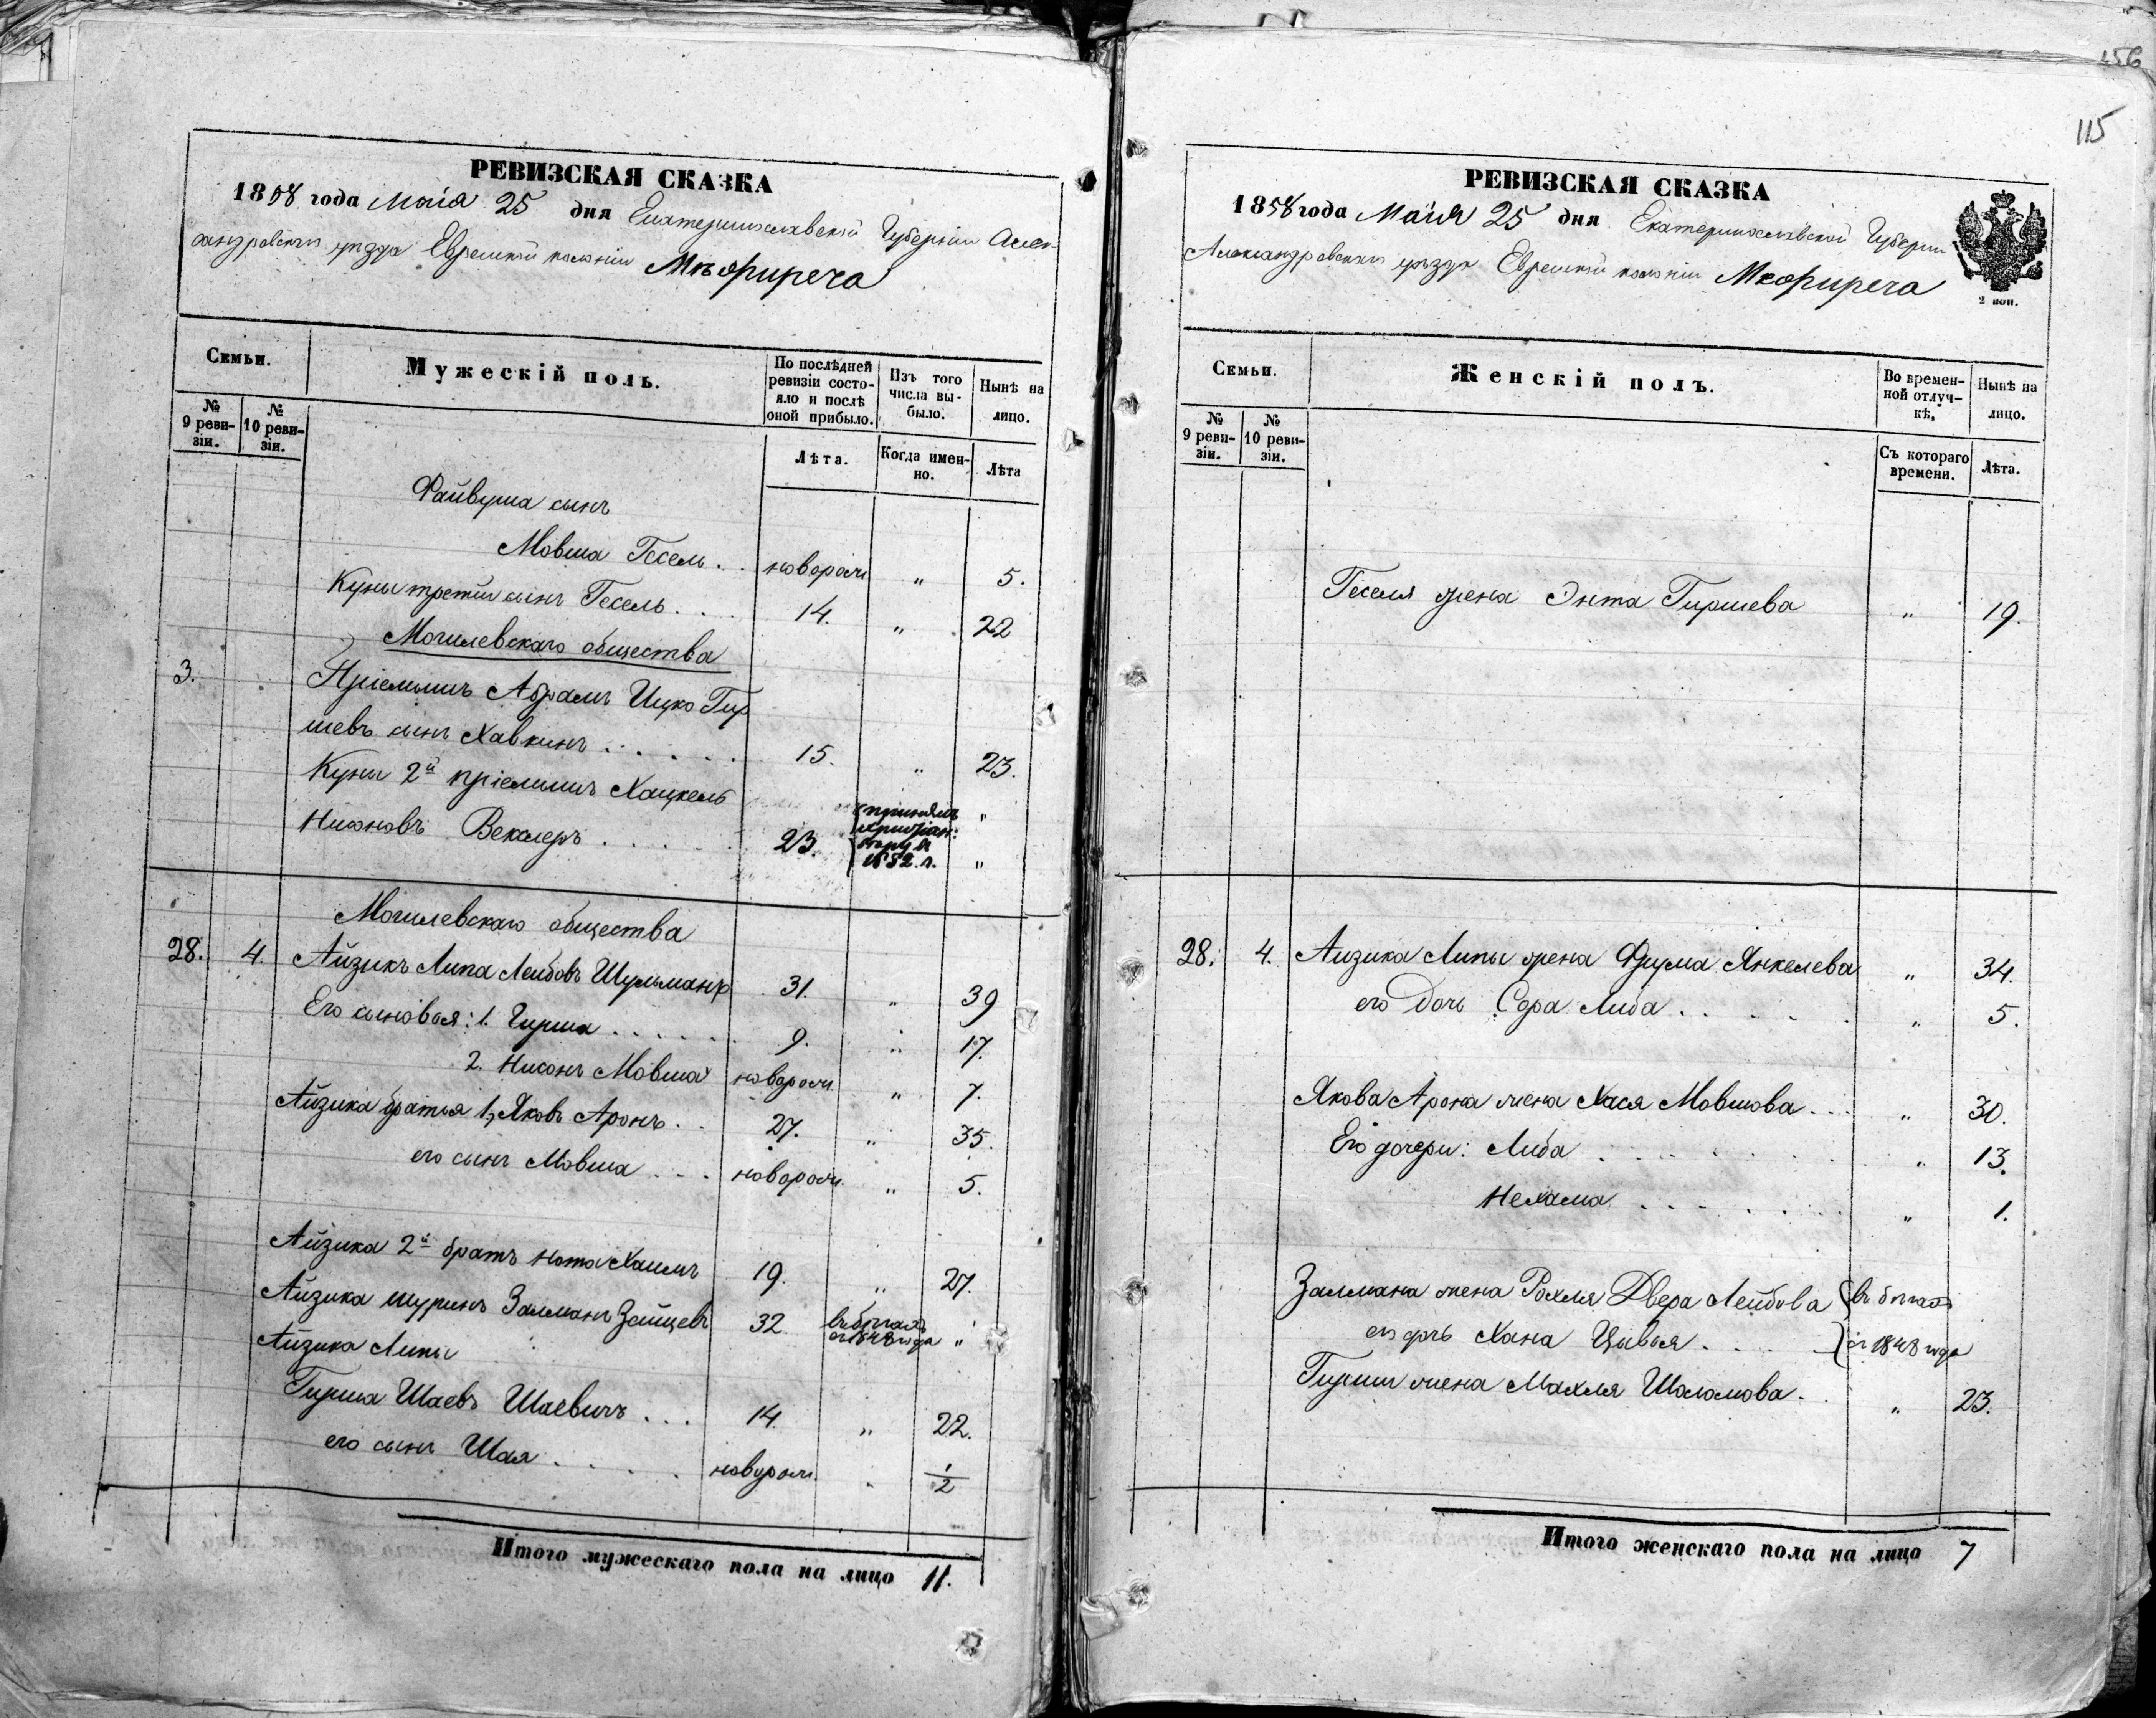 156
115
РЕВИЗСКАЯ СКАЗКА
1858 года Маія 25 дня Екатеринославской Губерніи Алек-
сандровскаго уѣзда Еврейской колоніи Межиречъ
Семьи.
Мужескій полъ.
По послѣдней ревизіи состояло и послѣ оной прибыло.
Изъ того числа выбыло.
Нынѣ на лицо.
№ 9 ревизіи.
№ 10 ревизіи.
Лѣта.
Когда именно.
Лѣта
Файвуша сынъ
Мовша Гесель . . новорож „ 5.
Куны третій сынъ Гесель . . . 14. „ 22
Могилевскаго общества
3. Пріемышъ Абрамъ Ицко Гир
шевъ сынъ Хавкинъ . . . . . . 15. „ 23.
Куны 2й пріемышъ Хацкель „
Нисоновъ Векслеръ . . . . . 23. принялъ
1852. г. „
Могилевскаго общества
28. 4. Айзикъ Липа Лейбовъ Шульманъ 31. „ 39
Его сыновья: 1. Гирша . . . . . . 9. „ 17.
2. Нисонъ Мовша новорож. „ 7.
Айзика братья 1, Яковъ Аронъ . . 27. „ 35.
его сынъ Мовша . . . новорож. „ 5.
Айзика 2й братъ Нота Хаимъ 19. „ 27.
Айзика шуринъ Залманъ Зайцевъ 32. въ бѣгахъ
съ 1848 года „
Айзика Липы
Гирша Шаевъ Шаевичъ . . . 14. „ 22.
его сынъ Шая . . . . . новорож. „ 1/2
Итого мужескаго пола на лицо 11.
РЕВИЗСКАЯ СКАЗКА
1858 года Маія 25 дня Екатеринославской Губерніи
Александровскаго уѣзда Еврейской колоніи
2 коп.
Семьи.
Женскій полъ.
Во временной отлучкѣ.
Нынѣ на лицо.
№ 9 ревизіи.
№ 10 ревизіи.
Съ котораго времени.
Лѣта.
Геселя жена Энта Гиршева „ 19.
28. 4. Айзика Липы жена Фрума Янкелева „ 34.
его дочь Сора Либа . . . . . „ 5.
Якова Арона жена Хася Мовшова . . . „ 30.
Его дочери: Либа . . . . . . . . „ 13.
Нехама . . . . . . . „ 1.
Залмана жена Рохля Двера Лейбова въ бѣгахъ
его дочь Хана Цывья . . . . съ 1848 года
Гирши жена Махля Шоломова . . „ 23.
Итого женскаго пола на лицо 7